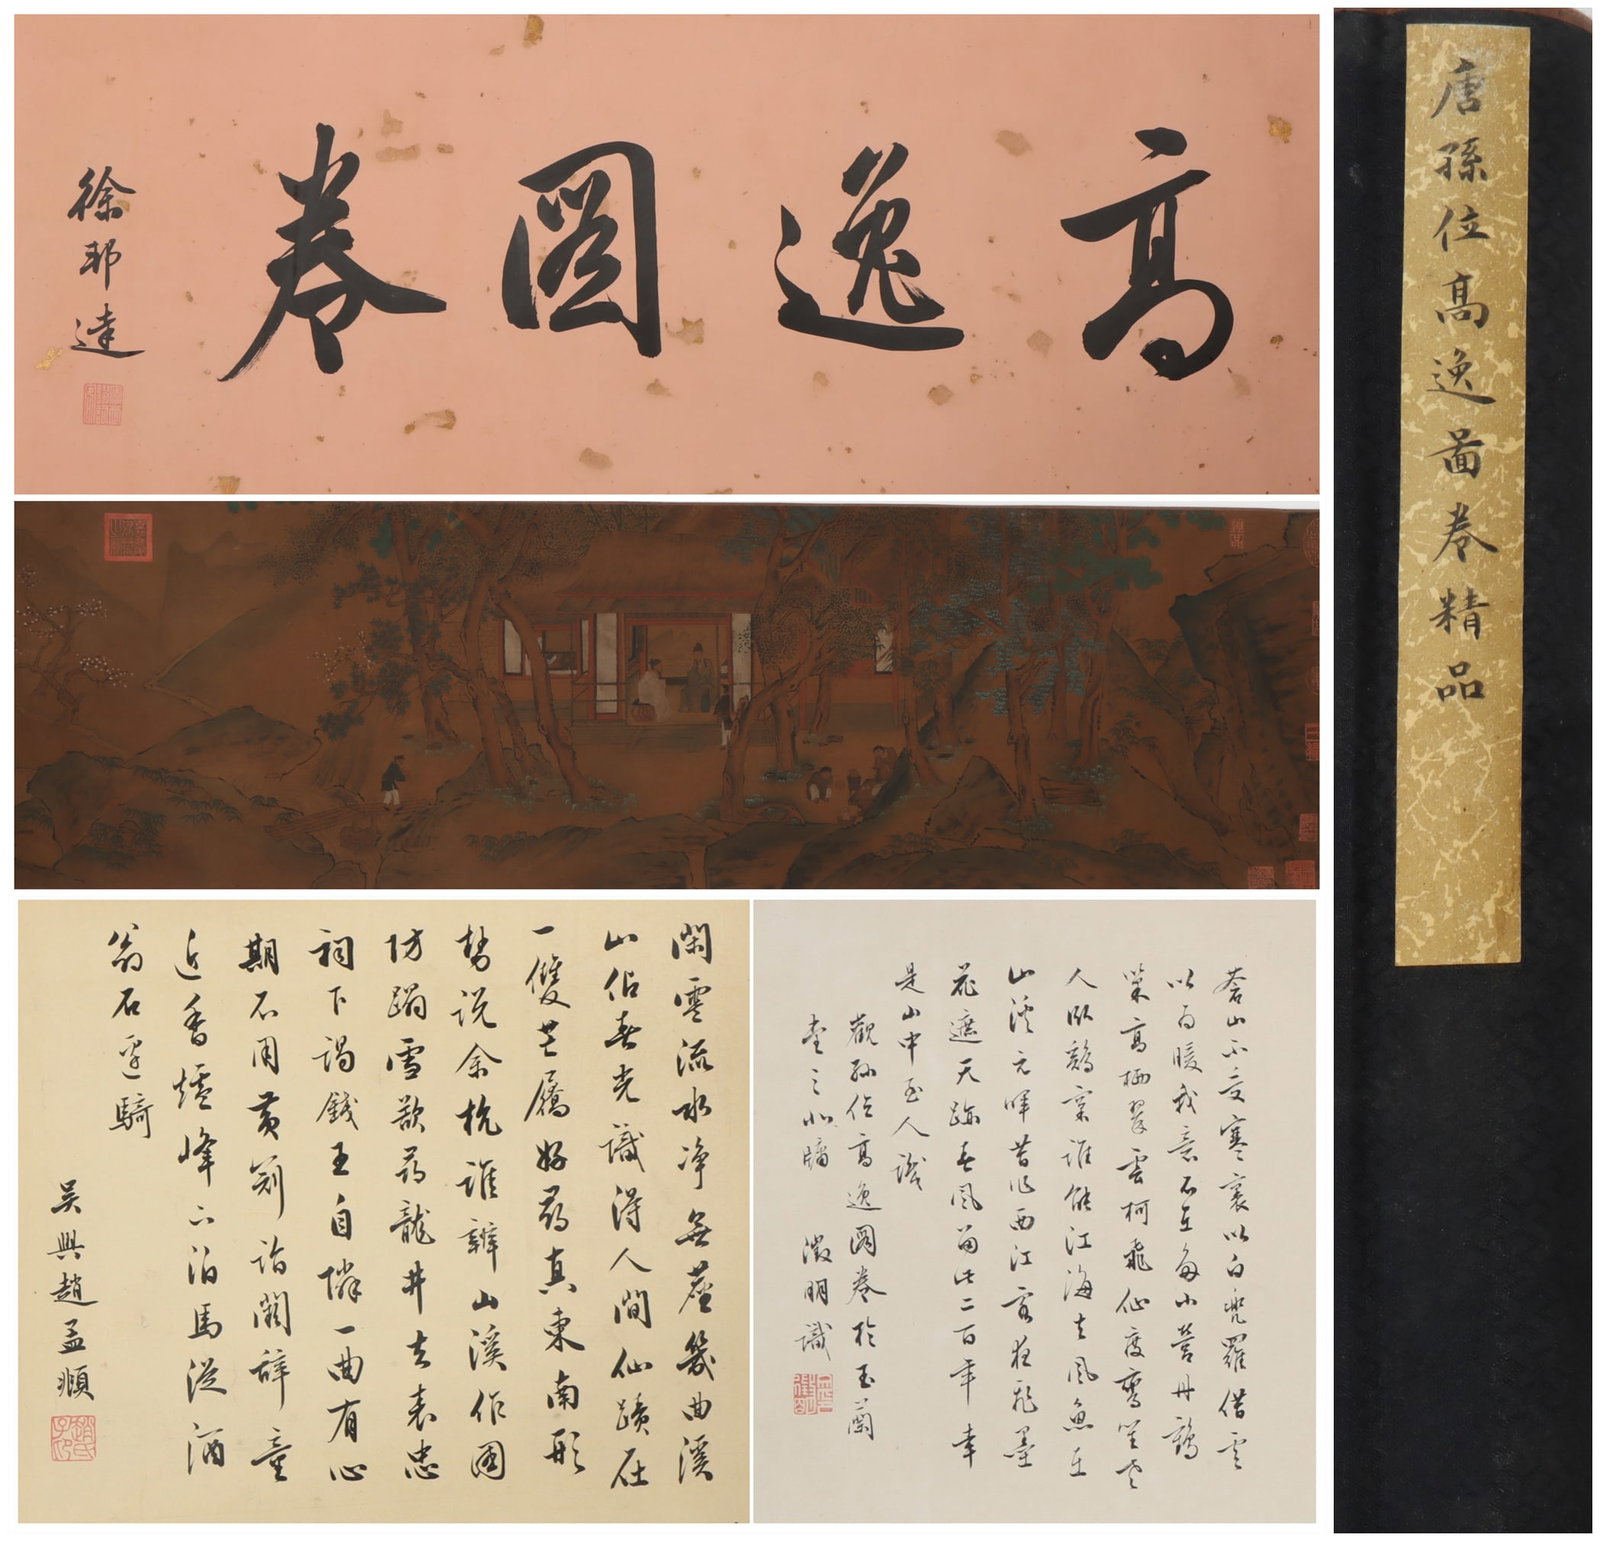 高逸圖卷
徐邦達
唐孫位高逸圖卷精品
閑雲流水净無塵幾曲溪
山佔春光識得人間仙蹟在
一雙芒屩好尋真東南形
勢說余杭誰辦山溪作國
防蹋雪欲尋龍井去表忠
祠下謁錢王自憐一曲有心
期不用黃冠詣闕辭童
近香爐峰下泊馬從酒
翁石逕騎
吳興趙孟頫
蒼山不受塞裏以白兜羅借雲
以為暖我意不在多小營丹鶴
巢高栖翠雲柯飛仙度鸞笙
人臥鷄棄誰能江海去風魚在
山溪元暉昔作西江客狂飛墨
花遮天跡春風留此二百年幸
是山中至人識
觀孫位高逸圖卷於玉蘭
堂之北牖
徵明識